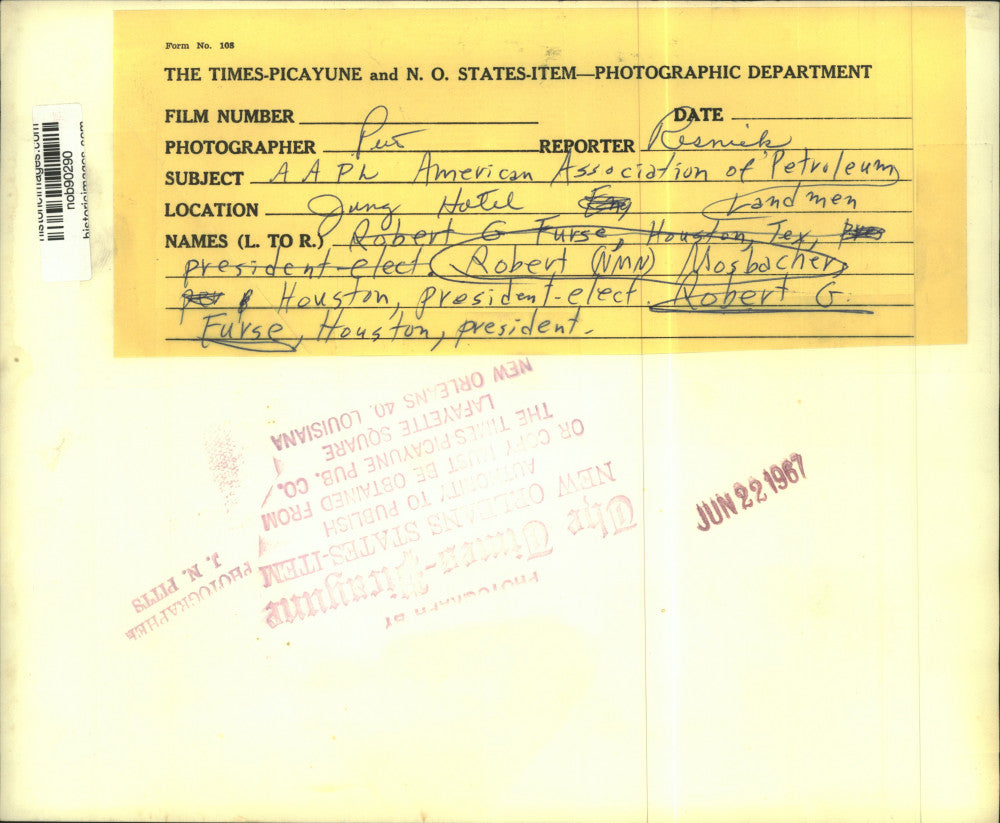 Form No. 108
THE TIMES-PICAYUNE and N. O. STATES-ITEM—PHOTOGRAPHIC DEPARTMENT
FILM NUMBER DATE
PHOTOGRAPHER REPORTER Resnick
SUBJECT A A P L American Association of Petroleum
LOCATION Jung Hotel Landmen
NAMES (L. TO R.) Robert G Furse, Houston, Tex,
president-elect. Robert (NMN) Mosbacher,
Houston, president-elect. Robert G.
Furse, Houston, president.
historicimages.com
nob90290
historicimages.com
JUN 22 1967
PHOTOGRAPH BY
The Times-Picayune
NEW ORLEANS STATES-ITEM
AUTHORITY TO PUBLISH
OR COPY MUST BE OBTAINED FROM
THE TIMES-PICAYUNE PUB. CO.
LAFAYETTE SQUARE
NEW ORLEANS 40, LOUISIANA
J. N. PITTS
PHOTOGRAPHER